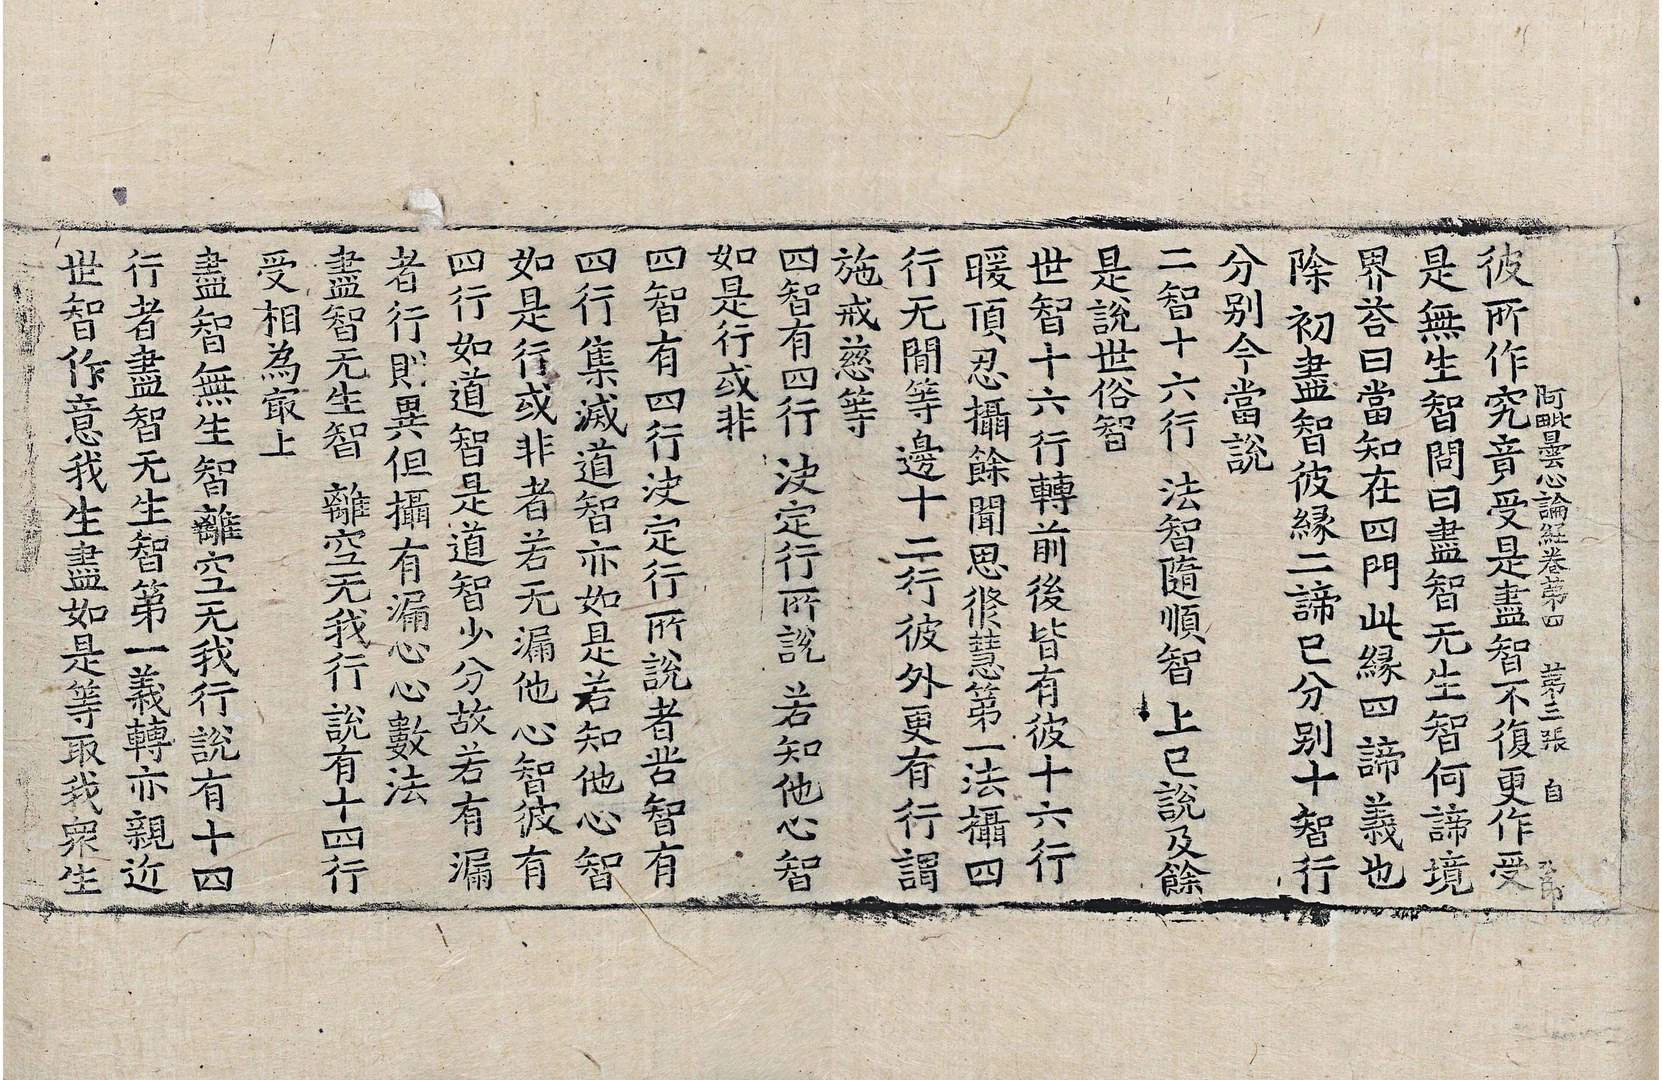 阿毗曇心論經卷第四 第三張 自
彼所作究竟受是盡智不復更作受
是無生智問曰盡智无生智何諦境
界荅曰當知在四門此緣四諦義也
除初盡智彼緣二諦已分別十智行
分別今當說
二智十六行 法智隨順智 上已說及餘
是說世俗智
世智十六行轉前後皆有彼十六行
暖頂忍攝餘聞思修慧第一法攝四
行无閒等邊十二行彼外更有行謂
施戒慈等
四智有四行 決定行所說 若知他心智
如是行或非
四智有四行決定行所說者苦智有
四行集滅道智亦如是若知他心智
如是行或非者若无漏他心智彼有
四行如道智是道智少分故若有漏
者行則異但攝有漏心心數法
盡智无生智 離空无我行 說有十四行
受相為㝡上
盡智無生智離空无我行說有十四
行者盡智无生智第一義轉亦親近
世智作意我生盡如是等取我衆生